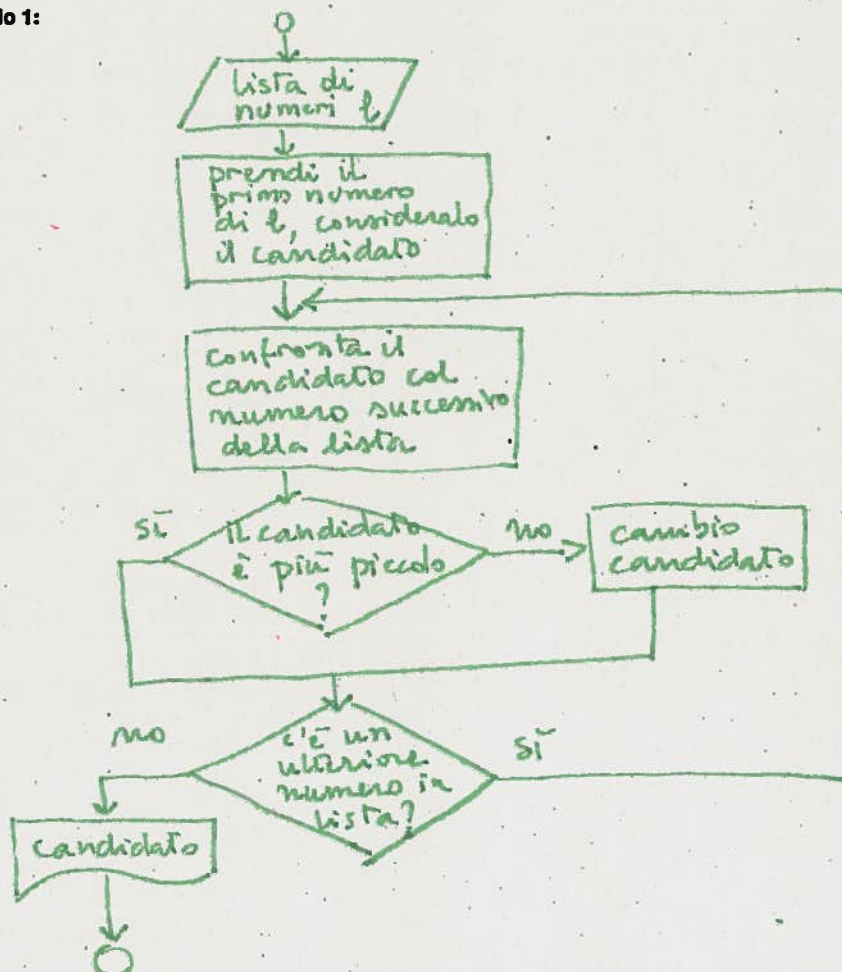 do 1:
lista di
numeri l
prendi il
primo numero
di l, consideralo
il candidato
confronta il
candidato col
numero successivo
della lista
sì
il candidato
è più piccolo
?
no
cambio
candidato
no
c'è un
ulteriore
numero in
lista?
sì
candidato